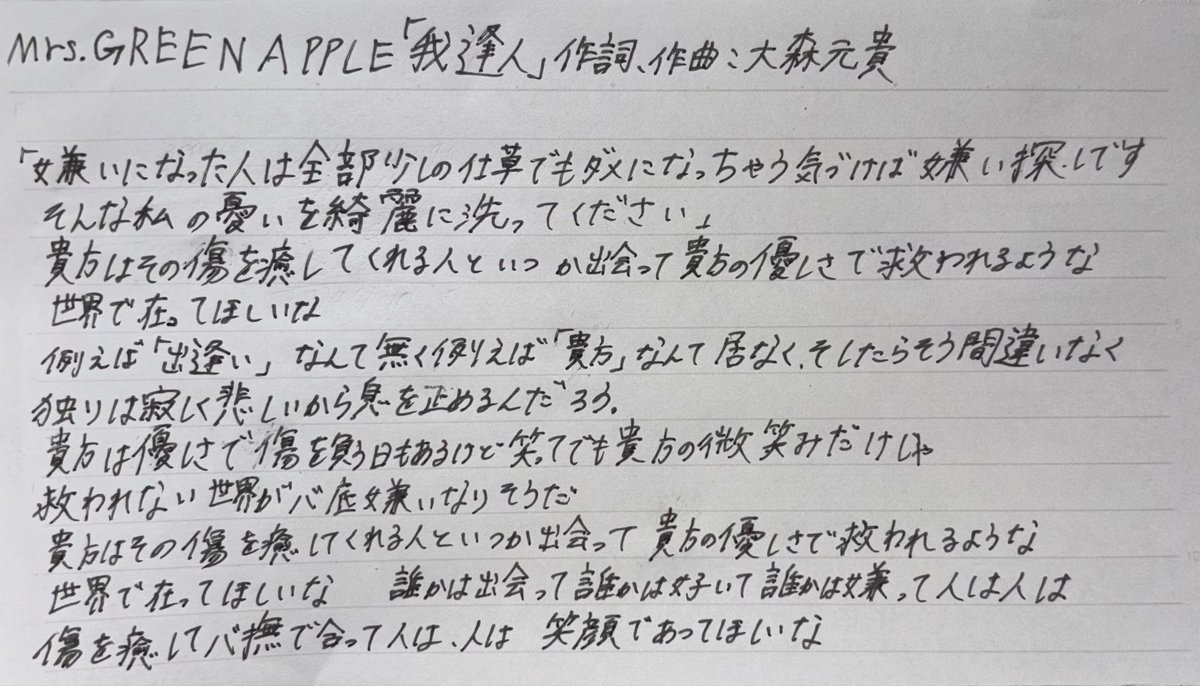 Mrs.GREEN APPLE「我逢人」作詞、作曲：大森元貴
「嫌いになった人は全部少しの仕草でもダメになっちゃう気づけば嫌い探しです
そんな私の憂いを綺麗に洗ってください」
貴方はその傷を癒してくれる人といつか出会って貴方の優しさで救われるような
世界で在ってほしいな
例えば「出逢い」なんて無く例えば「貴方」なんて居なく、そしたらそう間違いなく
独りは寂しく悲しいから息を止めるんだろう、
貴方は優しさで傷を負う日もあるけど笑ってでも貴方の微笑みだけじゃ
救われない世界が心底嫌いなりそうだ
貴方はその傷を癒してくれる人といつか出会って 貴方の優しさで救われるような
世界で在ってほしいな 誰かは出会って誰かは好いて誰かは嫌って人は人は
傷を癒して心撫で合って人は、人は 笑顔であってほしいな